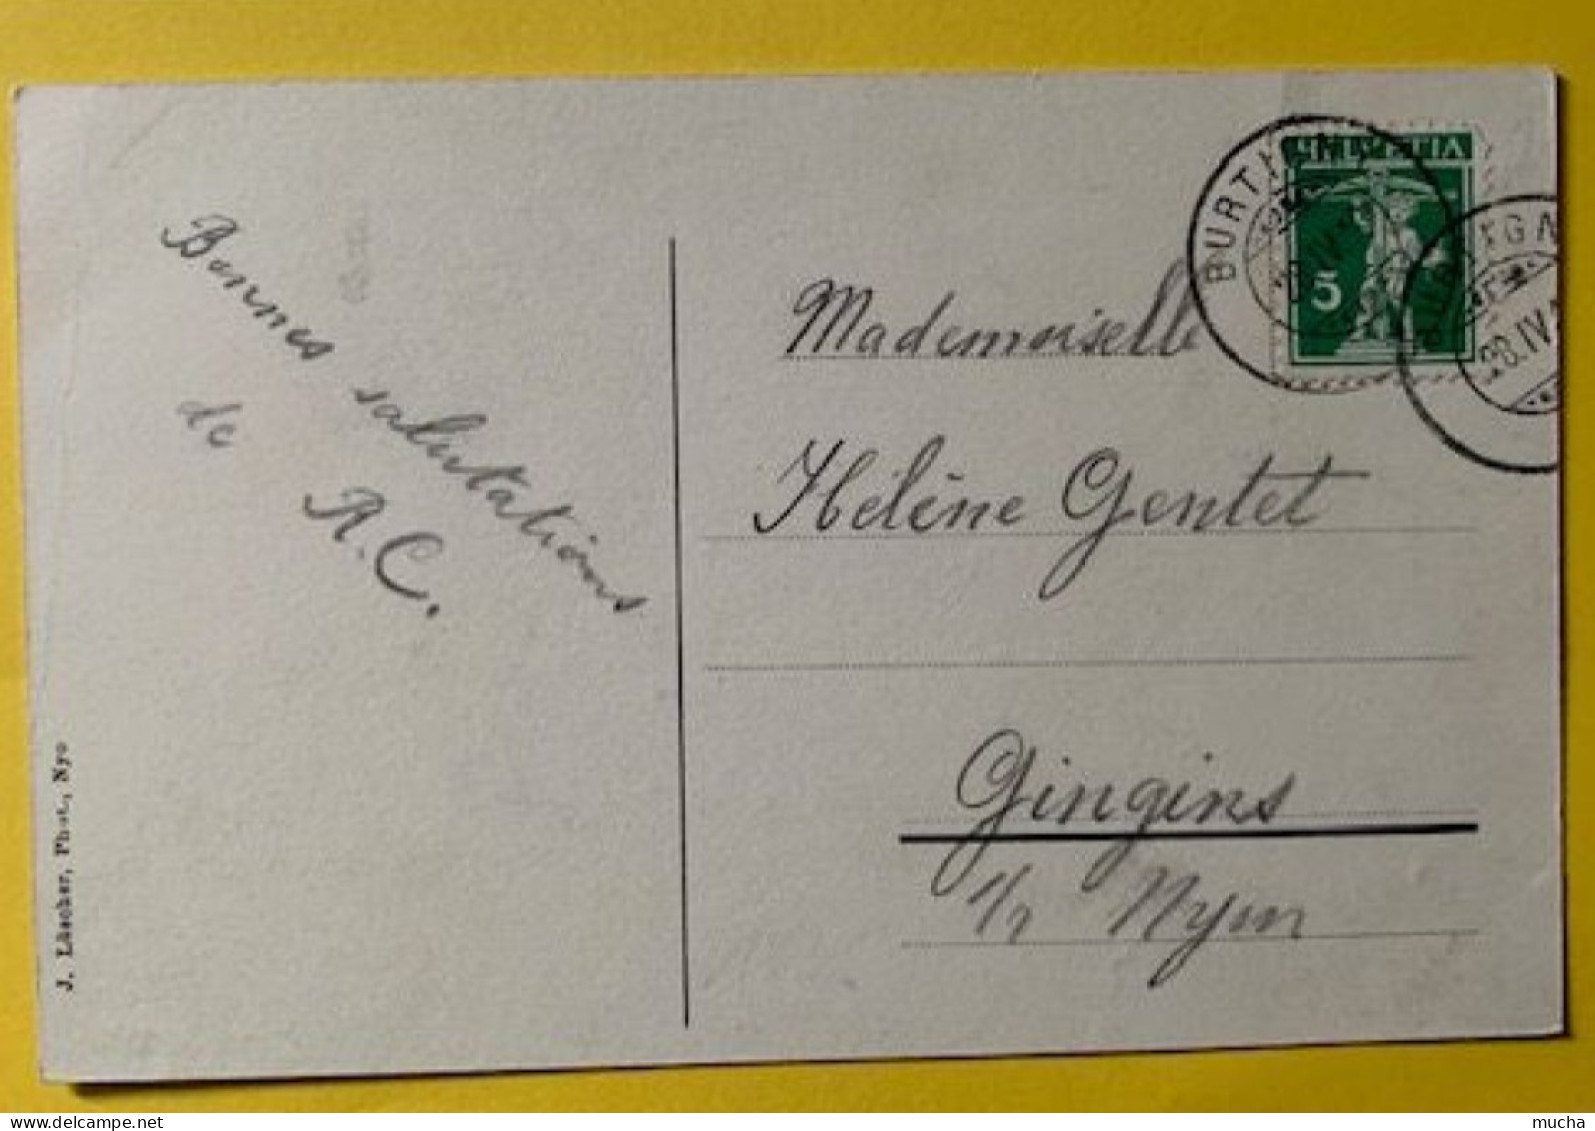 Bonnes salutations
de R.C.
J. Lüscher, Phot., Nyo
HELVETIA
5
BURTIGN
BURTIGN
28.IV
Mademoiselle
Hélène Gentet
Gingins
s/ Nyon
www.delcampe.net
mucha